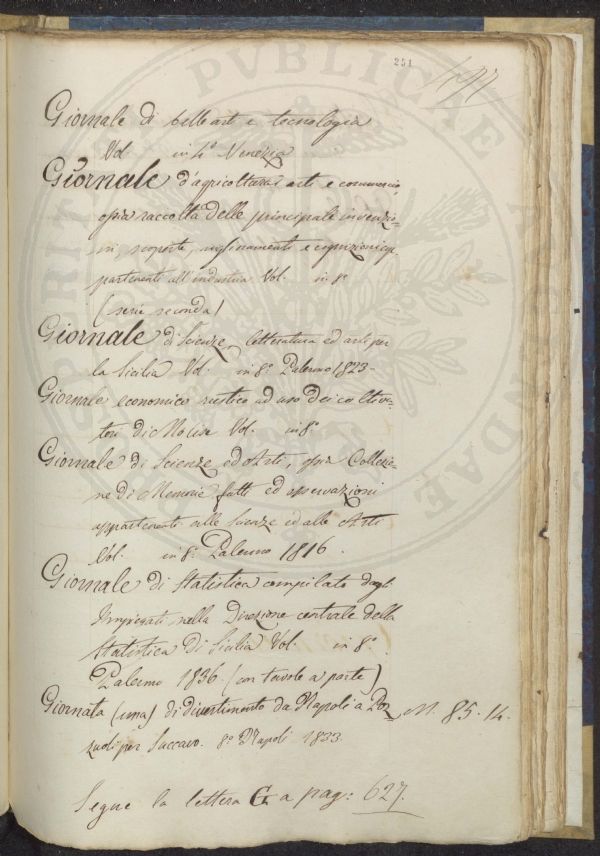 251
197
Giornale di belle arti e tecnologia
Vol. in 4° Venezia
Giornale d'agricoltura arti e commercio
ossia raccolta delle principale invenzio=
ni, scoperte, miglioramenti e cognizioni ap
partenenti all'industria Vol. in 8°
(serie seconda)
Giornale di Scienze, letteratura ed arti per
la Sicilia Vol. in 8° Palermo 1823
Giornale economico rustico ad uso dei coltiva=
tori di Molise Vol. in 8°
Giornale di Scienze ed Arti, ossia Collezio=
ne di Memorie fatti ed osservazioni
appartenenti alle Scienze ed alle Arti
Vol. in 8° Palermo 1816.
Giornale di Statistica compilato dagl'
Impiegati nella Direzione centrale della
Statistica di Sicilia Vol. in 8°
Palermo 1836 (con tavole a parte)
Giornata (una) di divertimento da Napoli a Poz M. 85.14.
zuoli per Soccavo. 8° Napoli 1833.
Segue la lettera G a pag: 627.
PUBLICAE